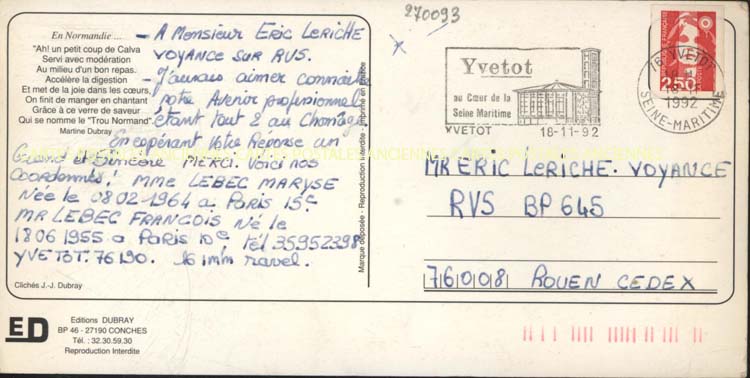 270093
En Normandie ...
"Ah! un petit coup de Calva
Servi avec modération
Au milieu d'un bon repas.
Accélère la digestion
Et met de la joie dans les cœurs,
On finit de manger en chantant
Grâce à ce verre de saveur
Qui se nomme le "Trou Normand".
Martine Dubray
- A Monsieur ERIC LERICHE
VOYANCE SUR RVS.
- J'aurais aimer connaitre
notre Avenir professionnel
étant tout 2 au Chomage
En espérant Votre Réponse un
Grand et Sincère MERCI. Voici nos
Coordonnés! MME LEBEC MARYSE
Née le 08.02.1964 a Paris 15e
MR LEBEC FRANCOIS Né le
18061955 a Paris 10e, tél 35952398
YVETOT. 76190. 16 imm ravel.
Clichés J.-J. Dubray
ED
Editions DUBRAY
BP 46 - 27190 CONCHES
Tél. : 32.30.59.30
Reproduction Interdite
Marque déposée - Reproduction Interdite - Imprimé en France
Yvetot
au Cœur de la
Seine Maritime
YVETOT 18-11-92
76 YVETOT
1992
SEINE-MARITIME
2,50
MR ERIC LERICHE. VOYANCE
RVS BP 645
76008 ROUEN CEDEX